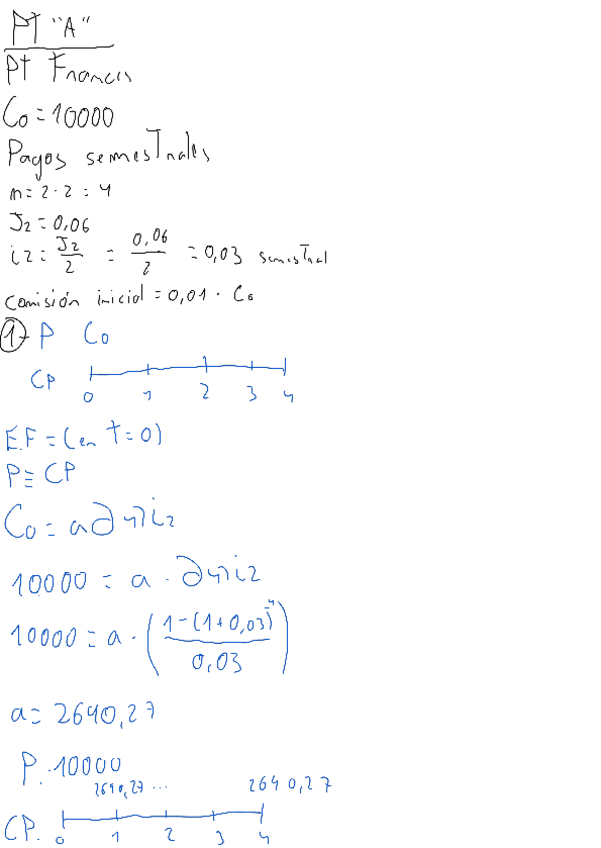 PT "A"
PT Frances
C₀ = 10000
Pagos semestrales
n = 2 · 2 = 4
J₂ = 0,06
i₂ = J₂/2 = 0,06/2 = 0,03 semestral
Comisión inicial = 0,01 · C₀
①- P C₀
CP 0 1 2 3 4
E.F = (en t = 0)
P ≡ CP
C₀ = a a₄¬i₂
10000 = a · a₄¬i₂
10000 = a · (1-(1+0,03)⁻⁴ / 0,03)
a = 2640,27
P. 10000
2690,27 ... 2640,27
CP. 0 1 2 3 4